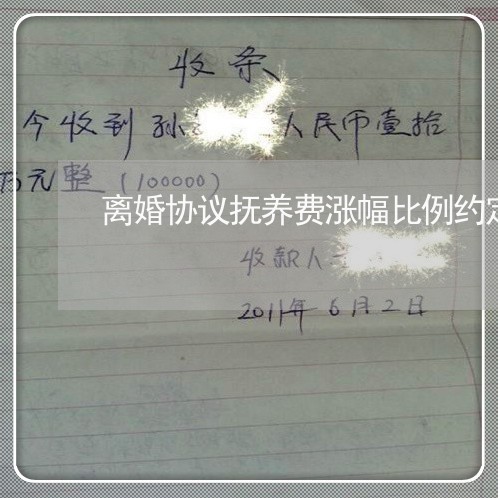 收条
今收到孙 人民币壹拾
万元整(100000)
离婚协议抚养费涨幅比例约定
收款人
2011年6月2日